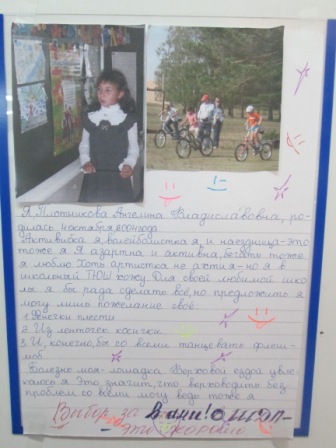 Я Плотникова Ангелина Владиславовна, ро-
дилась 4 октября 2001 года
Активистка я, волейболистка я, и наездница - это
тоже я. Я азартна и активна, бегать тоже
я люблю. Хоть артистка не ахти я - но я в
школьный ТЮЗ хожу. Для своей любимой шко-
лы я бы рада сделать всё, но предложить я
могу лишь пожелание своё:
1. Венечки плести
2. Из ленточек косичек
3. И, конечно, бы го всеми танцевать флеш-
моб.
Болезно моя - лошадка. Верховой ездой увле-
каюсь я. Это значит, что верховодить без
проблем со всеми могу ведь тоже я
Выбор за вами!
это здорово